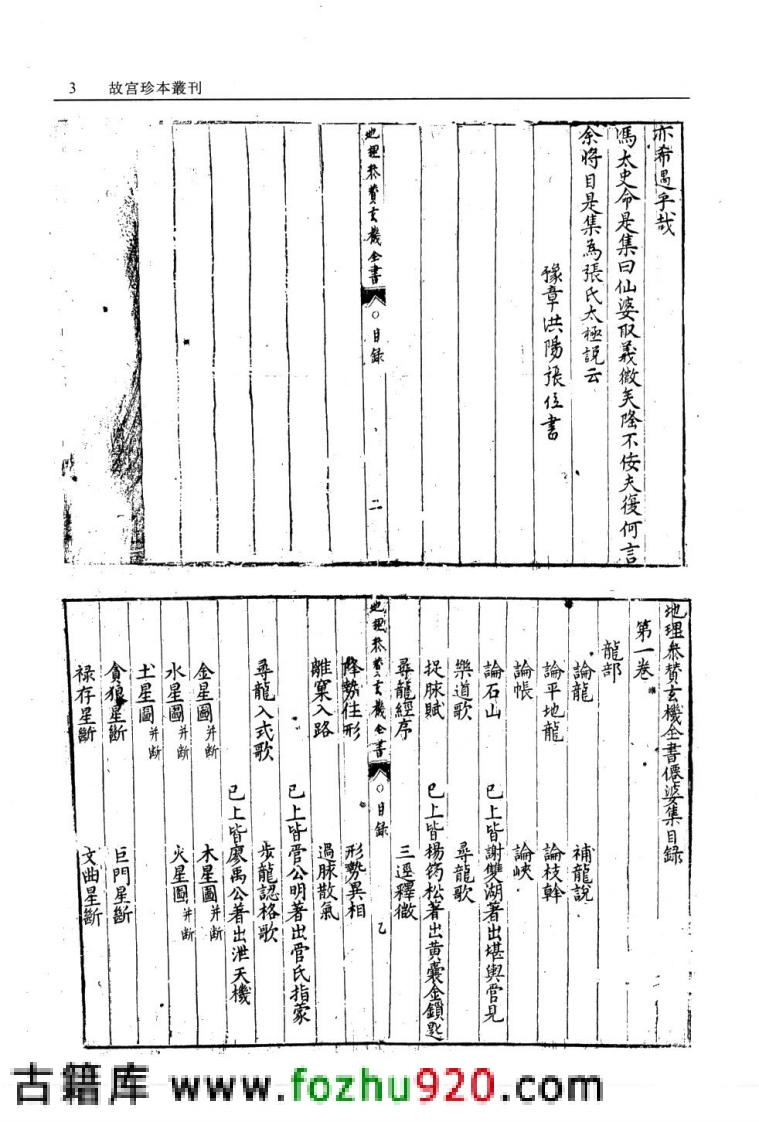 3 故宮珍本叢刊
亦希遇乎哉
馮太史命是集曰仙婆取義微矣隆不佞夫復何言
余將目是集為張氏太極說云
豫章洪陽張位書
地理參贊玄機全書 ○目錄 二
地理參贊玄機全書僊婆集目錄
第一卷
龍部
論龍 補龍說
論平地龍 論枝幹
論帳 論峽
論石山 已上皆謝雙湖著出堪輿管見
樂道歌 尋龍歌
捉脉賦 已上皆楊筠松著出黃囊金鎖匙
尋龍經序 三逕釋微
地理參贊玄機全書 ○目錄 乙
降勢住形 形勢異相
離窠入路 過脉散氣
已上皆管公明著出管氏指蒙
尋龍入式歌 步龍認格歌
已上皆廖禹公著出泄天機
金星圖并斷 木星圖并斷
水星圖并斷 火星圖并斷
土星圖并斷
貪狼星斷 巨門星斷
祿存星斷 文曲星斷
古籍库 www.fozhu920.com